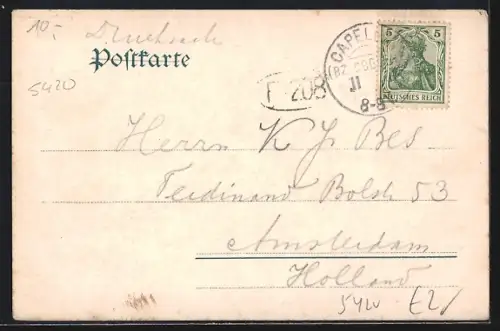 10,-
Drucksache
Postkarte
5420
CAPEL
BZ. COB
11
8-8
F 208
5
5
DEUTSCHES REICH
Herrn K J Bes
Ferdinand Bolstr 53
Amsterdam
Holland
5420